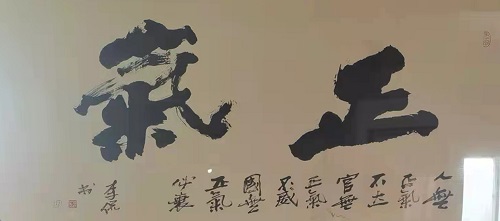 正氣
人無
正氣
不立
官無
正氣
不威
國無
正氣
必衰
李侃
书